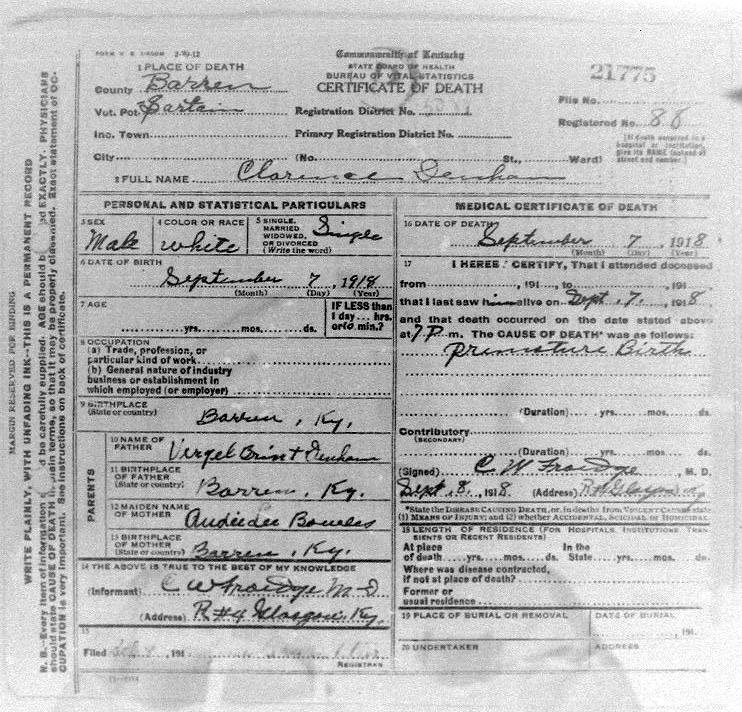 FORM V. S. 1-50OM 2-19-12
Commonwealth of Kentucky
STATE BOARD OF HEALTH
BUREAU OF VITAL STATISTICS
CERTIFICATE OF DEATH
21775
1 PLACE OF DEATH
County Barren
Vot. Pct. Sartain
Registration District No.
File No.
Inc. Town
Primary Registration District No.
Registered No. 88
[If death occurred in a hospital or institution, give its NAME instead of street and number.]
City (No. St., Ward)
2 FULL NAME Clarence Denham
PERSONAL AND STATISTICAL PARTICULARS
3 SEX Male
4 COLOR OR RACE white
5 SINGLE, MARRIED WIDOWED, OR DIVORCED (Write the word) Single
6 DATE OF BIRTH
September 7, 1918
(Month) (Day) (Year)
7 AGE
yrs. mos. ds.
IF LESS than 1 day hrs. or 10 min.?
8 OCCUPATION
(a) Trade, profession, or particular kind of work
(b) General nature of industry business or establishment in which employed (or employer)
9 BIRTHPLACE
(State or country) Barren, Ky.
PARENTS
10 NAME OF FATHER Denham
11 BIRTHPLACE OF FATHER
(State or country) Barren, Ky.
12 MAIDEN NAME OF MOTHER Bowles
13 BIRTHPLACE OF MOTHER
(State or country) Barren, Ky.
14 THE ABOVE IS TRUE TO THE BEST OF MY KNOWLEDGE
(Informant) C W Froedge M D
(Address) R #4 Glasgow, Ky.
15
Filed 191
REGISTRAR
MEDICAL CERTIFICATE OF DEATH
16 DATE OF DEATH
September 7, 1918
(Month) (Day) (Year)
17 I HEREBY CERTIFY, That I attended deceased
from , 191 , to , 191
that I last saw him alive on Sept. 7, 1918
and that death occurred on the date stated above
at 7 P m. The CAUSE OF DEATH* was as follows:
Premature Birth
(Duration) yrs. mos. ds.
Contributory
(SECONDARY)
(Duration) yrs. mos. ds.
(Signed) C W Froedge, M. D.
Sept. 8, 1918 (Address) R #4 Glasgow, Ky
*State the DISEASE CAUSING DEATH, or, in deaths from VIOLENT CAUSES state (1) MEANS OF INJURY; and (2) whether ACCIDENTAL, SUICIDAL or HOMICIDAL
18 LENGTH OF RESIDENCE (FOR HOSPITALS, INSTITUTIONS TRANSIENTS OR RECENT RESIDENTS)
At place of death yrs. mos. ds. In the State yrs. mos. ds.
Where was disease contracted, if not at place of death?
Former or usual residence
19 PLACE OF BURIAL OR REMOVAL
DATE OF BURIAL
, 191
20 UNDERTAKER
ADDRESS
MARGIN RESERVED FOR BINDING
WRITE PLAINLY, WITH UNFADING INK—THIS IS A PERMANENT RECORD
N. B.—Every item of information should be carefully supplied. AGE should be stated EXACTLY. PHYSICIANS
should state CAUSE OF DEATH in plain terms, so that it may be properly classified. Exact statement of OC-
CUPATION is very important. See instructions on back of certificate.